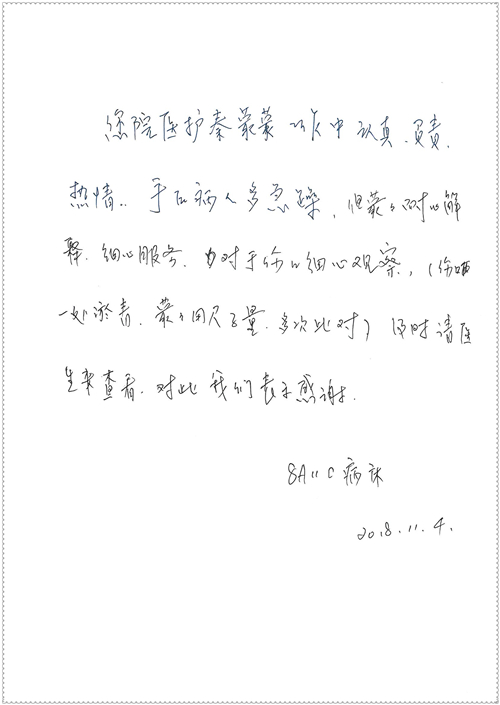 您院医护秦蒙蒙工作中认真、负责、
热情。手术病人多急躁,但蒙々耐心解
释、细心服务。由对于伤口细心观察,(伤口
一处淤青,蒙々用尺子量,多次比对)及时请医
生来查看,对此我们表示感谢。
8A11C病床
2018.11.4.